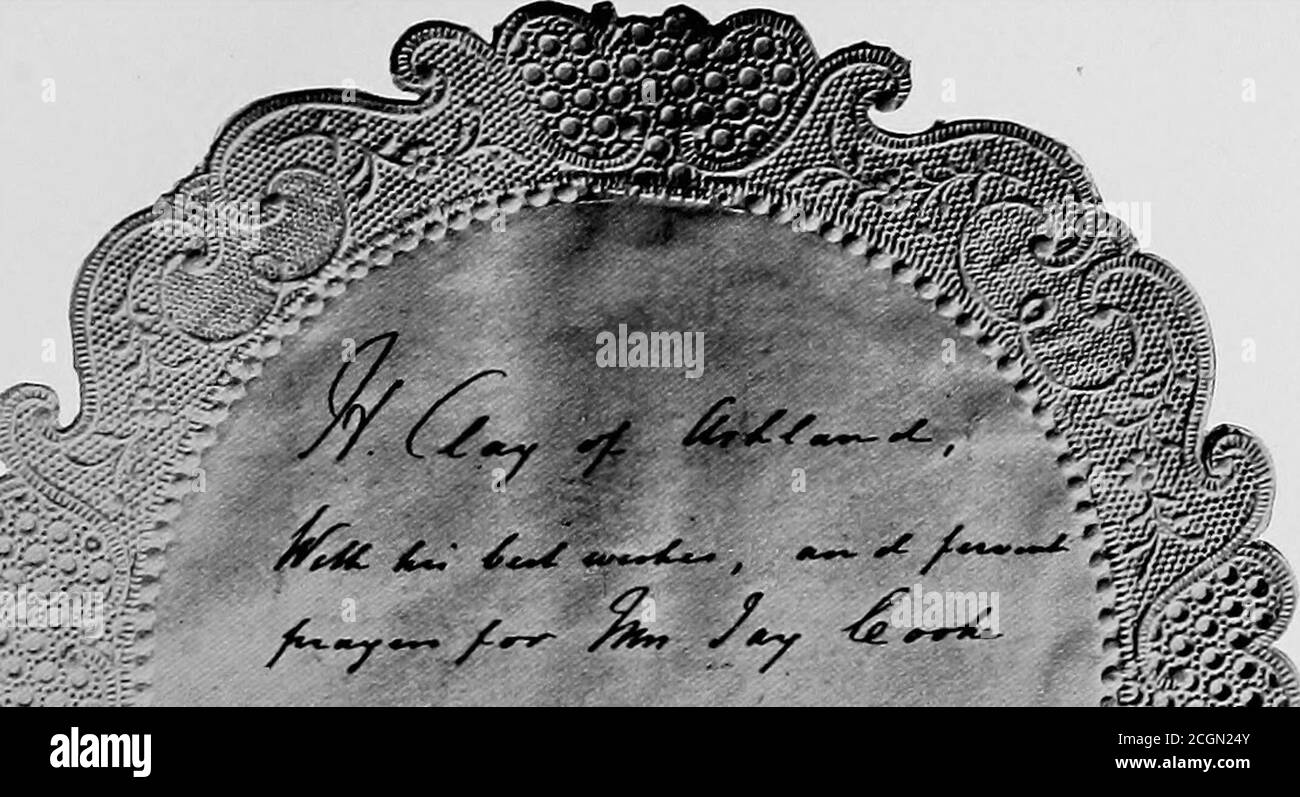 H. Clay of Ashland,
With his best wishes, and fervent
prayers for Mrs Jay Cook
alamy
Image ID: 2CGN24Y
www.alamy.com